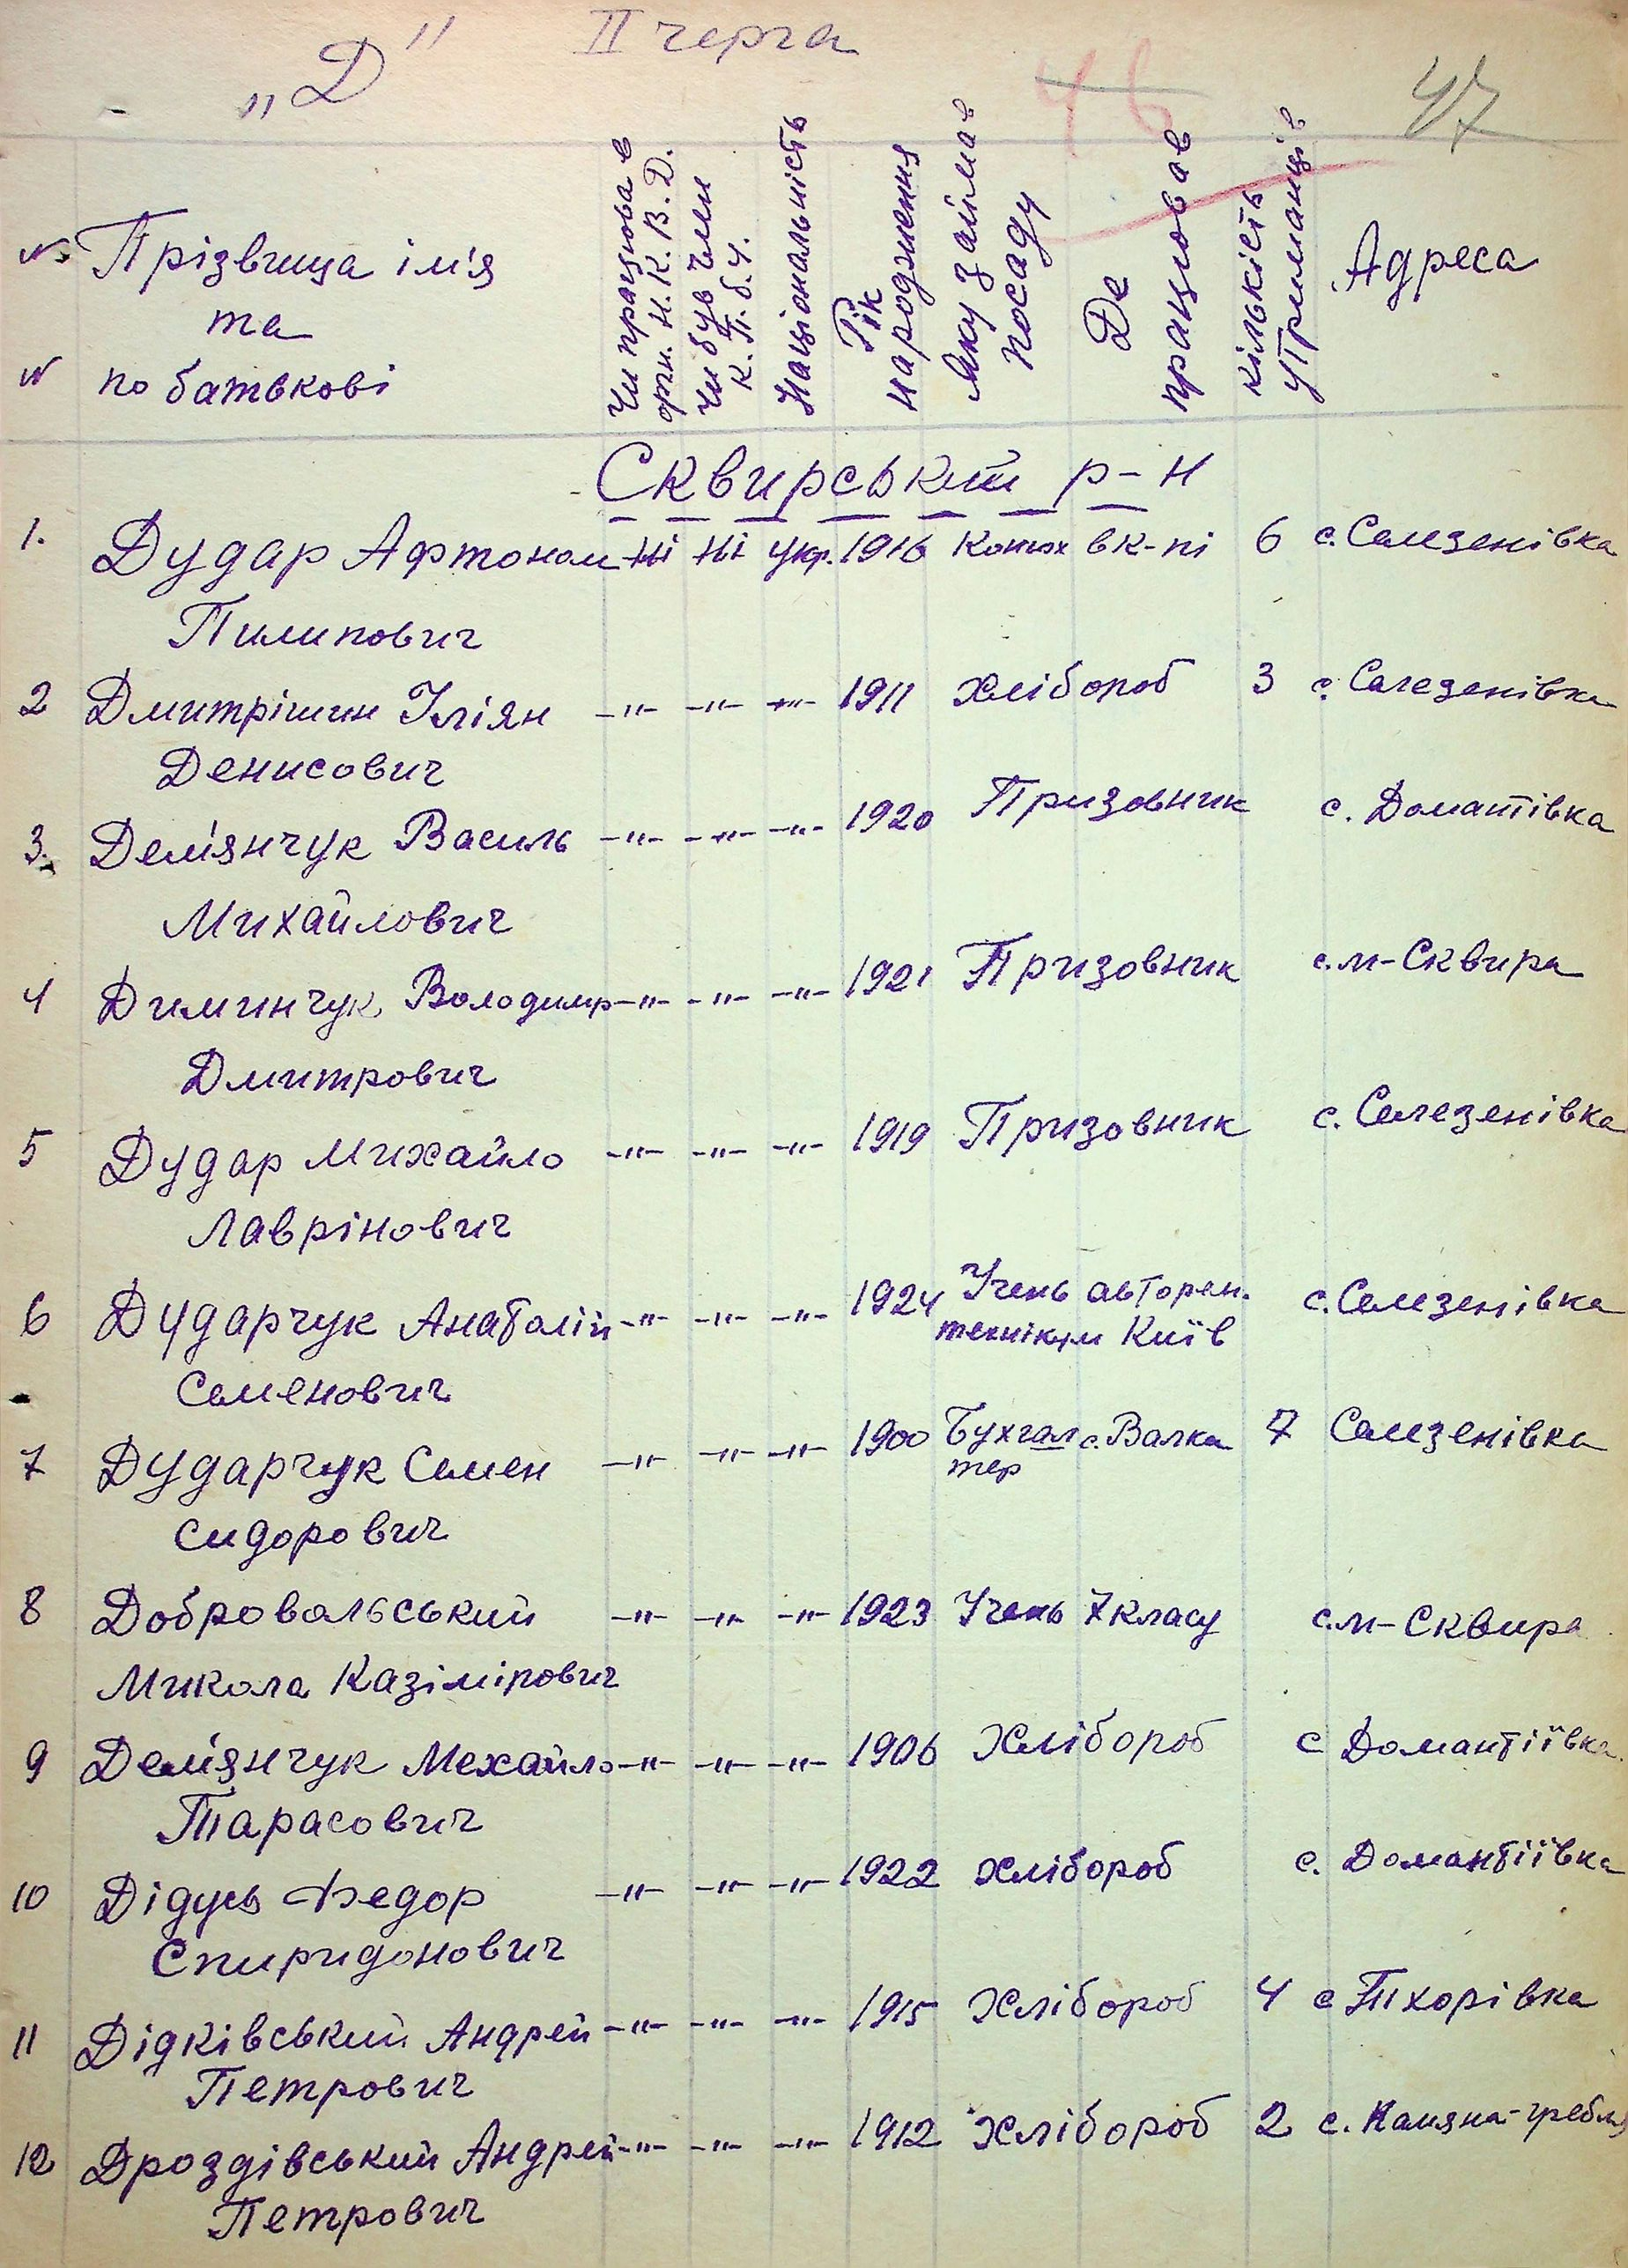 „Д" II черга
46 47
№ Прізвища ім'я
та
№ по батькові
Чи працював
орги. Н.К.В.Д.
Чи був член
К.П.б.У.
Національність
Рік
народження
Яку займав
посаду
Де
працював
кількість
утриманців
Адреса
Сквирський р-н
1. Дудар Афтоном Ні Ні Укр. 1916 Конюх в к-пі 6 с. Селезенівка
Пилипович
2 Дмитрішин Іліян -"- -"- -"- 1911 Хлібороб 3 с. Селезенівка
Денисович
3. Дем'янчук Василь -"- -"- -"- 1920 Призовник с. Доматівка
Михайлович
4 Диминчук Володимир -"- -"- -"- 1921 Призовник с.м-Сквира
Дмитрович
5 Дудар Михайло -"- -"- -"- 1919 Призовник с. Селезенівка
Лаврінович
6 Дударчук Анатолій -"- -"- -"- 1924 Учень авторем. с. Селезенівка
технікум Київ
Семенович
7 Дударчук Семен -"- -"- -"- 1900 Бухгал с. Валка 7 Селезенівка
тер
Сидорович
8 Добровальський -"- -"- -"- 1923 Учень 7 класу с.м-Сквира
Микола Казімірович
9 Дем'янчук Мехайло -"- -"- -"- 1906 Хлібороб с Домантіївка
Тарасович
10 Дідусь Федор -"- -"- -"- 1922 Хлібороб с. Домантіївка
Спиридонович
11 Дідківський Андрей -"- -"- -"- 1915 Хлібороб 4 с Тхорівка
Петрович
12 Дроздівський Андрей -"- -"- -"- 1912 Хлібороб 2 с. Камяна-гребля
Петрович